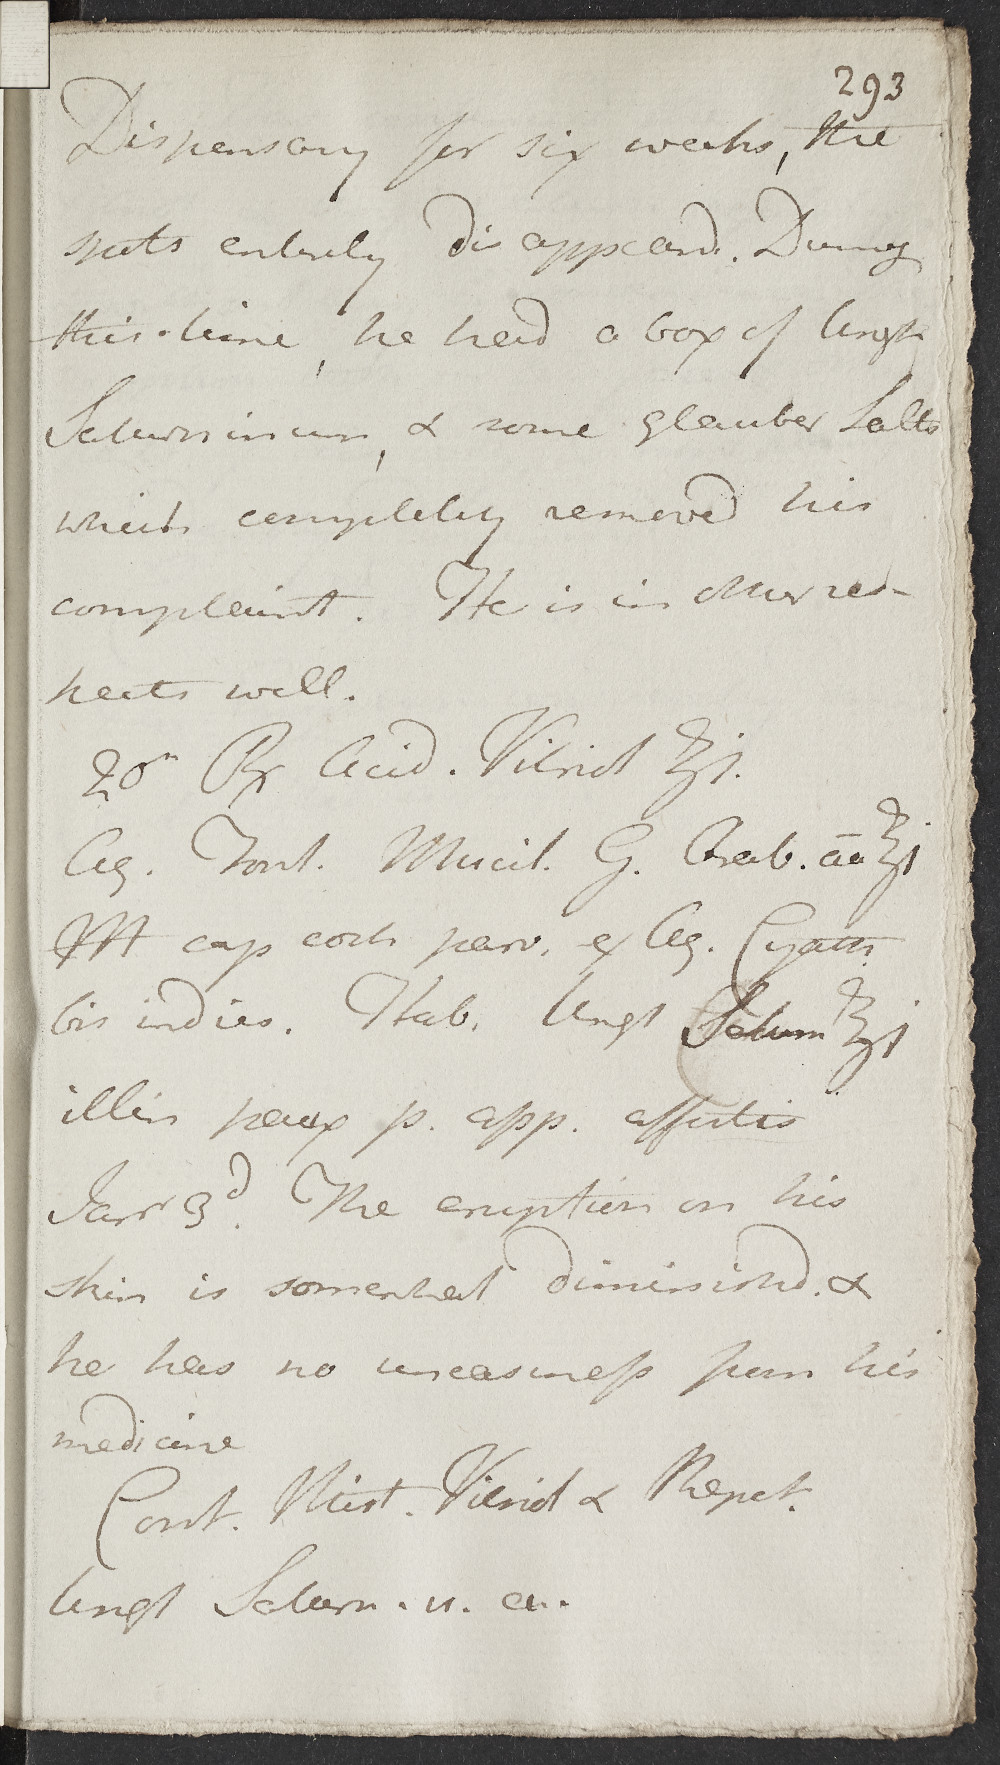 293
Dispensary for six weeks, the
spots entirely disappeard. During
this time, he had a box of Ungt
Saturninum, & some glauber Salts
which completely removed his
complaint. He is in other res-
pects well.
20th ℞ Acid. Vitriol ʒj.
Aq. Font. Mucil. G. Arab. aa ℥j
M cap coch parv. ex Aq. Cyath
bis indies. Hab. Ungt Saturn ℥j
illin paux p. app. affectis
Jany 3d. The eruption on his
skin is somewhat diminishd. &
he has no uneasiness from his
medicine
Cont. Mist. Vitriol & Repet.
Ungt Saturn. u. a.